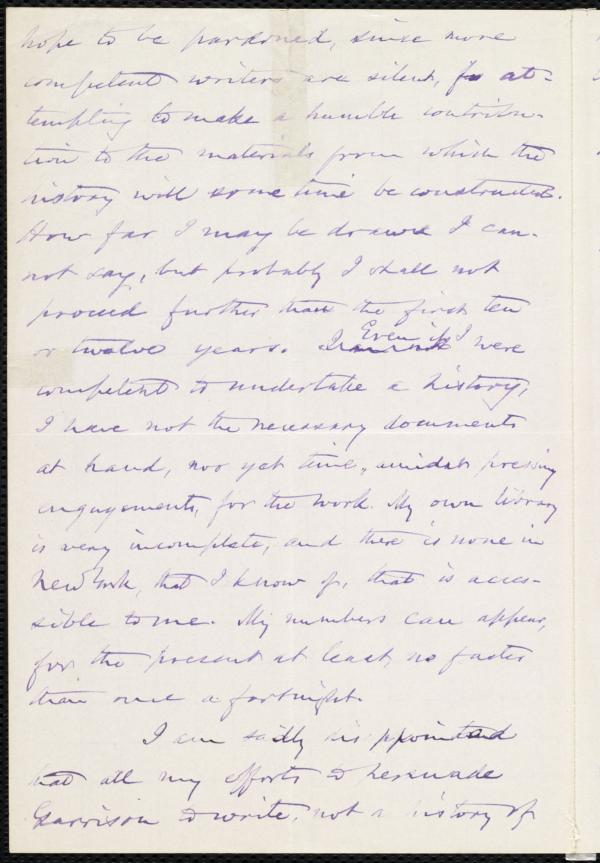 hope to be pardoned, since more
competent writers are silent, for at-
tempting to make a humble contribu-
tion to the materials from which the
history will some time be constructed.
How far I may be drawn I can-
not say, but probably I shall not
proceed further than the first ten
or twelve years. Even if I were
competent to undertake a history,
I have not the necessary documents
at hand, nor yet time, amidst pressing
engagements, for the work. My own library
is very incomplete, and there is none in
New York, that I know of, that is acces-
sible to me. My numbers can appear,
for the present at least, no faster
than once a fortnight.
I am sadly disappointed
that all my efforts to persuade
Garrison to write, not a history of